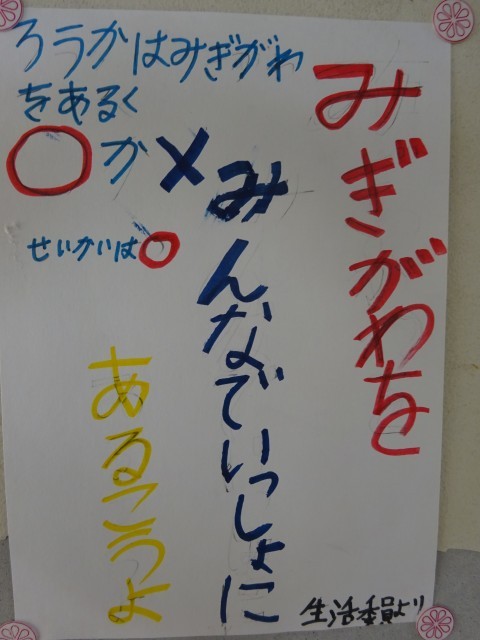 ろうかはみぎがわ
をあるく
○か×
せいかいは○
みぎがわを
みんなでいっしょに
あるこうよ
生活委員より